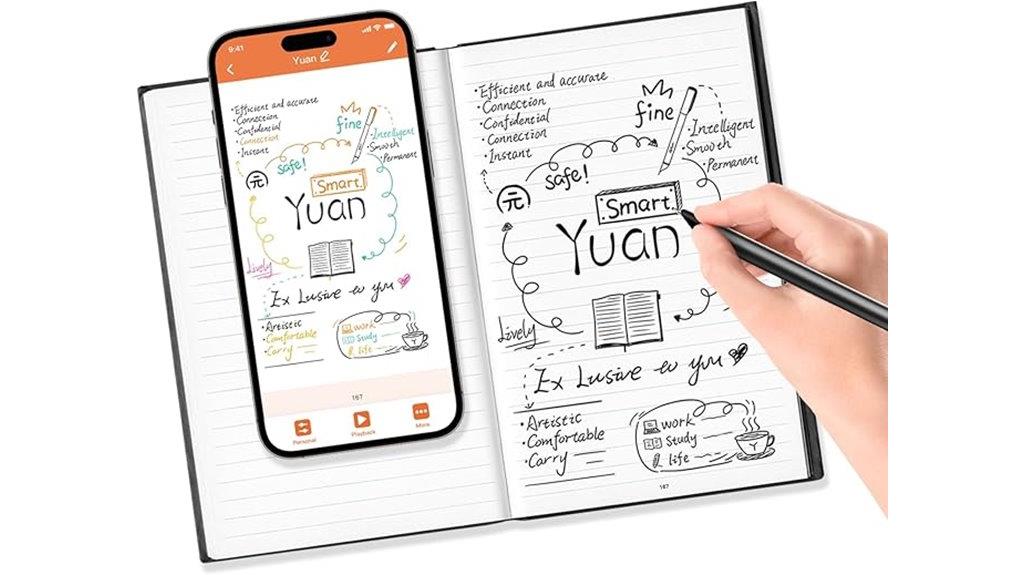 9:41
Yuan
·Efficient and accurate
·Connection
·Confidential
·Connection
·Instant
fine
·Intelligent
·Smooth
·Permanent
safe!
元
Smart
Yuan
Lively
Ex Lusive to you
·Artistic
·Comfortable
·Carry
work
Study
life
Y
167
Personal
Playback
More
·Efficient and accurate
·Connection
·Confidential
·Connection
·Instant
fine
·Intelligent
·Smooth
·Permanent
safe!
元
Smart
Yuan
Lively
Ex Lusive to you
·Artistic
·Comfortable
·Carry
work
Study
life
Y
167